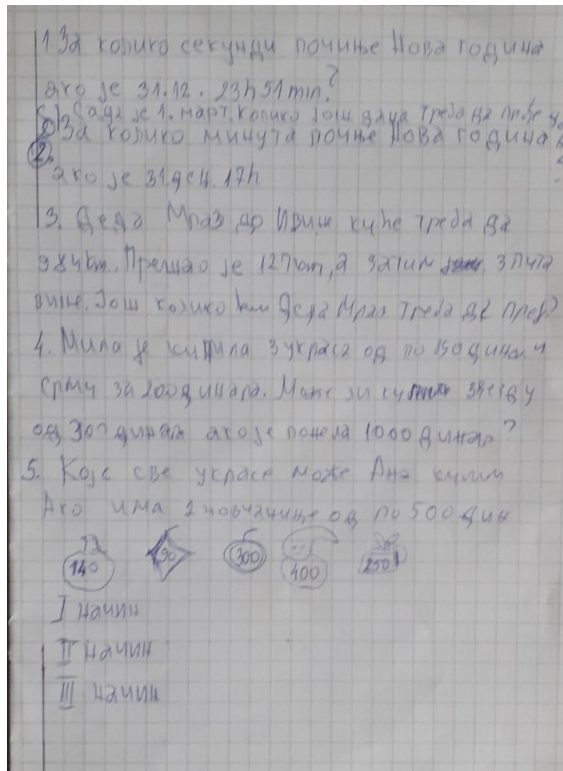 1. За колико секунди почиње Нова година
ако је 31.12. 23h 51min?
Сада је 1. март, колико још дана треба да прође
2. За колико минута почиње Нова година
ако је 31. дец. 17h
3. Деда Мраз до Ивине куће треба да
984km. Прешао је 127km, а затим 3 пута
више. Још колико km Деда Мраз треба да пређ?
4. Мила је купила 3 украса од по 150 динара и
срму за 200 динара. Може ли купити звезду
од 307 динара ако је понела 1000 динар?
5. Које све украсе може Ана купити
Ако има 2 новчанице од по 500 дин
140 90 300 400 250
I начин
II начин
III начин